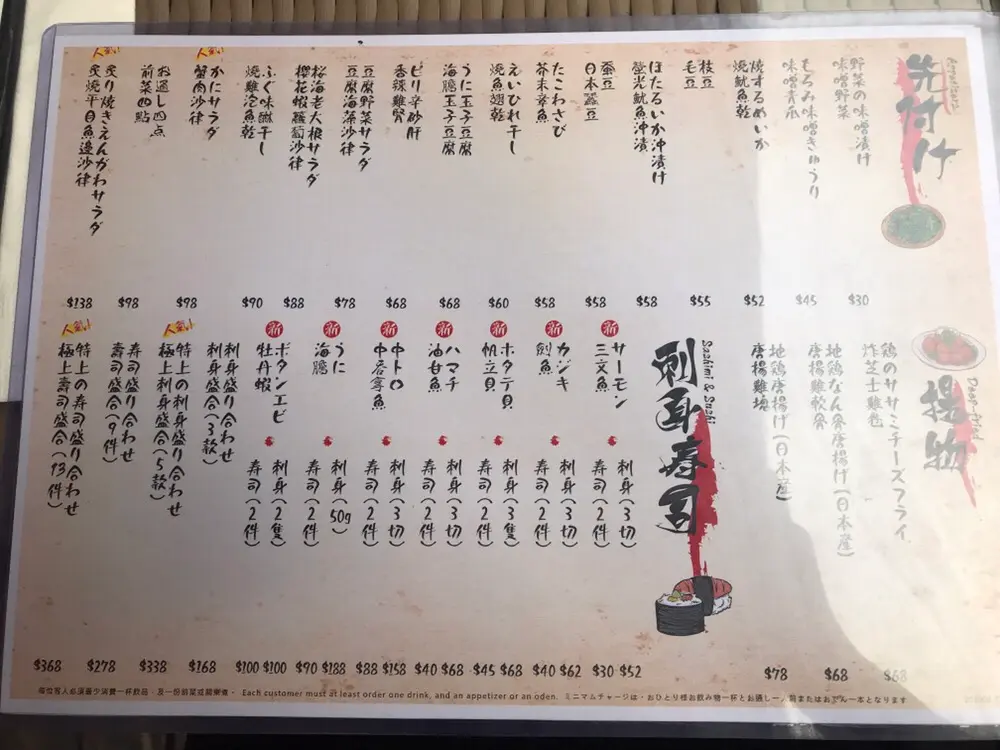 先付け
Appetizers
野菜の味噌漬け
味噌野菜
$30
もろみ味噌きゅうり
味噌青瓜
$45
焼するめいか
燒魷魚乾
$52
枝豆
毛豆
$55
ほたるいか沖漬け
螢光魷魚沖漬
$58
蚕豆
日本蠶豆
$58
たこわさび
芥末章魚
$58
えいひれ干し
燒魚翅乾
$60
うに玉子豆腐
海膽玉子豆腐
$68
ピリ辛砂肝
香辣雞腎
$68
豆腐野菜サラダ
豆腐海藻沙律
$78
桜海老大根サラダ
櫻花蝦蘿蔔沙律
$88
ふぐ味醂干し
燒雞泡魚乾
$90
人気!!
かにサラダ
蟹肉沙律
$98
お通し四点
前菜四點
$98
人気!!
炙り焼きえんがわサラダ
炙燒平目魚邊沙律
$138
揚物
Deep-fried
鶏のササミチーズフライ
炸芝士雞卷
$68
地鶏なん骨唐揚げ(日本産)
唐揚雞軟骨
$68
地鶏唐揚げ(日本産)
唐揚雞塊
$78
刺身寿司
Sashimi & Sushi
新
サーモン
三文魚
刺身(3切) $52
寿司(2件) $30
新
カジキ
劍魚
刺身(3切) $62
寿司(2件) $40
新
ホタテ貝
帆立貝
刺身(3隻) $68
寿司(2件) $45
新
ハマチ
油甘魚
刺身(3切) $68
寿司(2件) $40
新
中トロ
中吞拿魚
刺身(3切) $158
寿司(2件) $88
新
うに
海膽
刺身(50g) $188
寿司(2件) $90
新
ボタンエビ
牡丹蝦
刺身(2隻) $100
寿司(2件) $100
刺身盛り合わせ
刺身盛合(3款)
$168
人気!!
特上の刺身盛り合わせ
極上刺身盛合(5款)
$338
寿司盛り合わせ
壽司盛合(9件)
$278
人気!!
特上の寿司盛り合わせ
極上壽司盛合(13件)
$368
每位客人必須最少消費一杯飲品，及一份前菜或關東煮。 Each customer must at least order one drink, and an appetizer or an oden. ミニマムチャージは、おひとり様お飲み物一杯とお通し一人前またはおでん一本となります